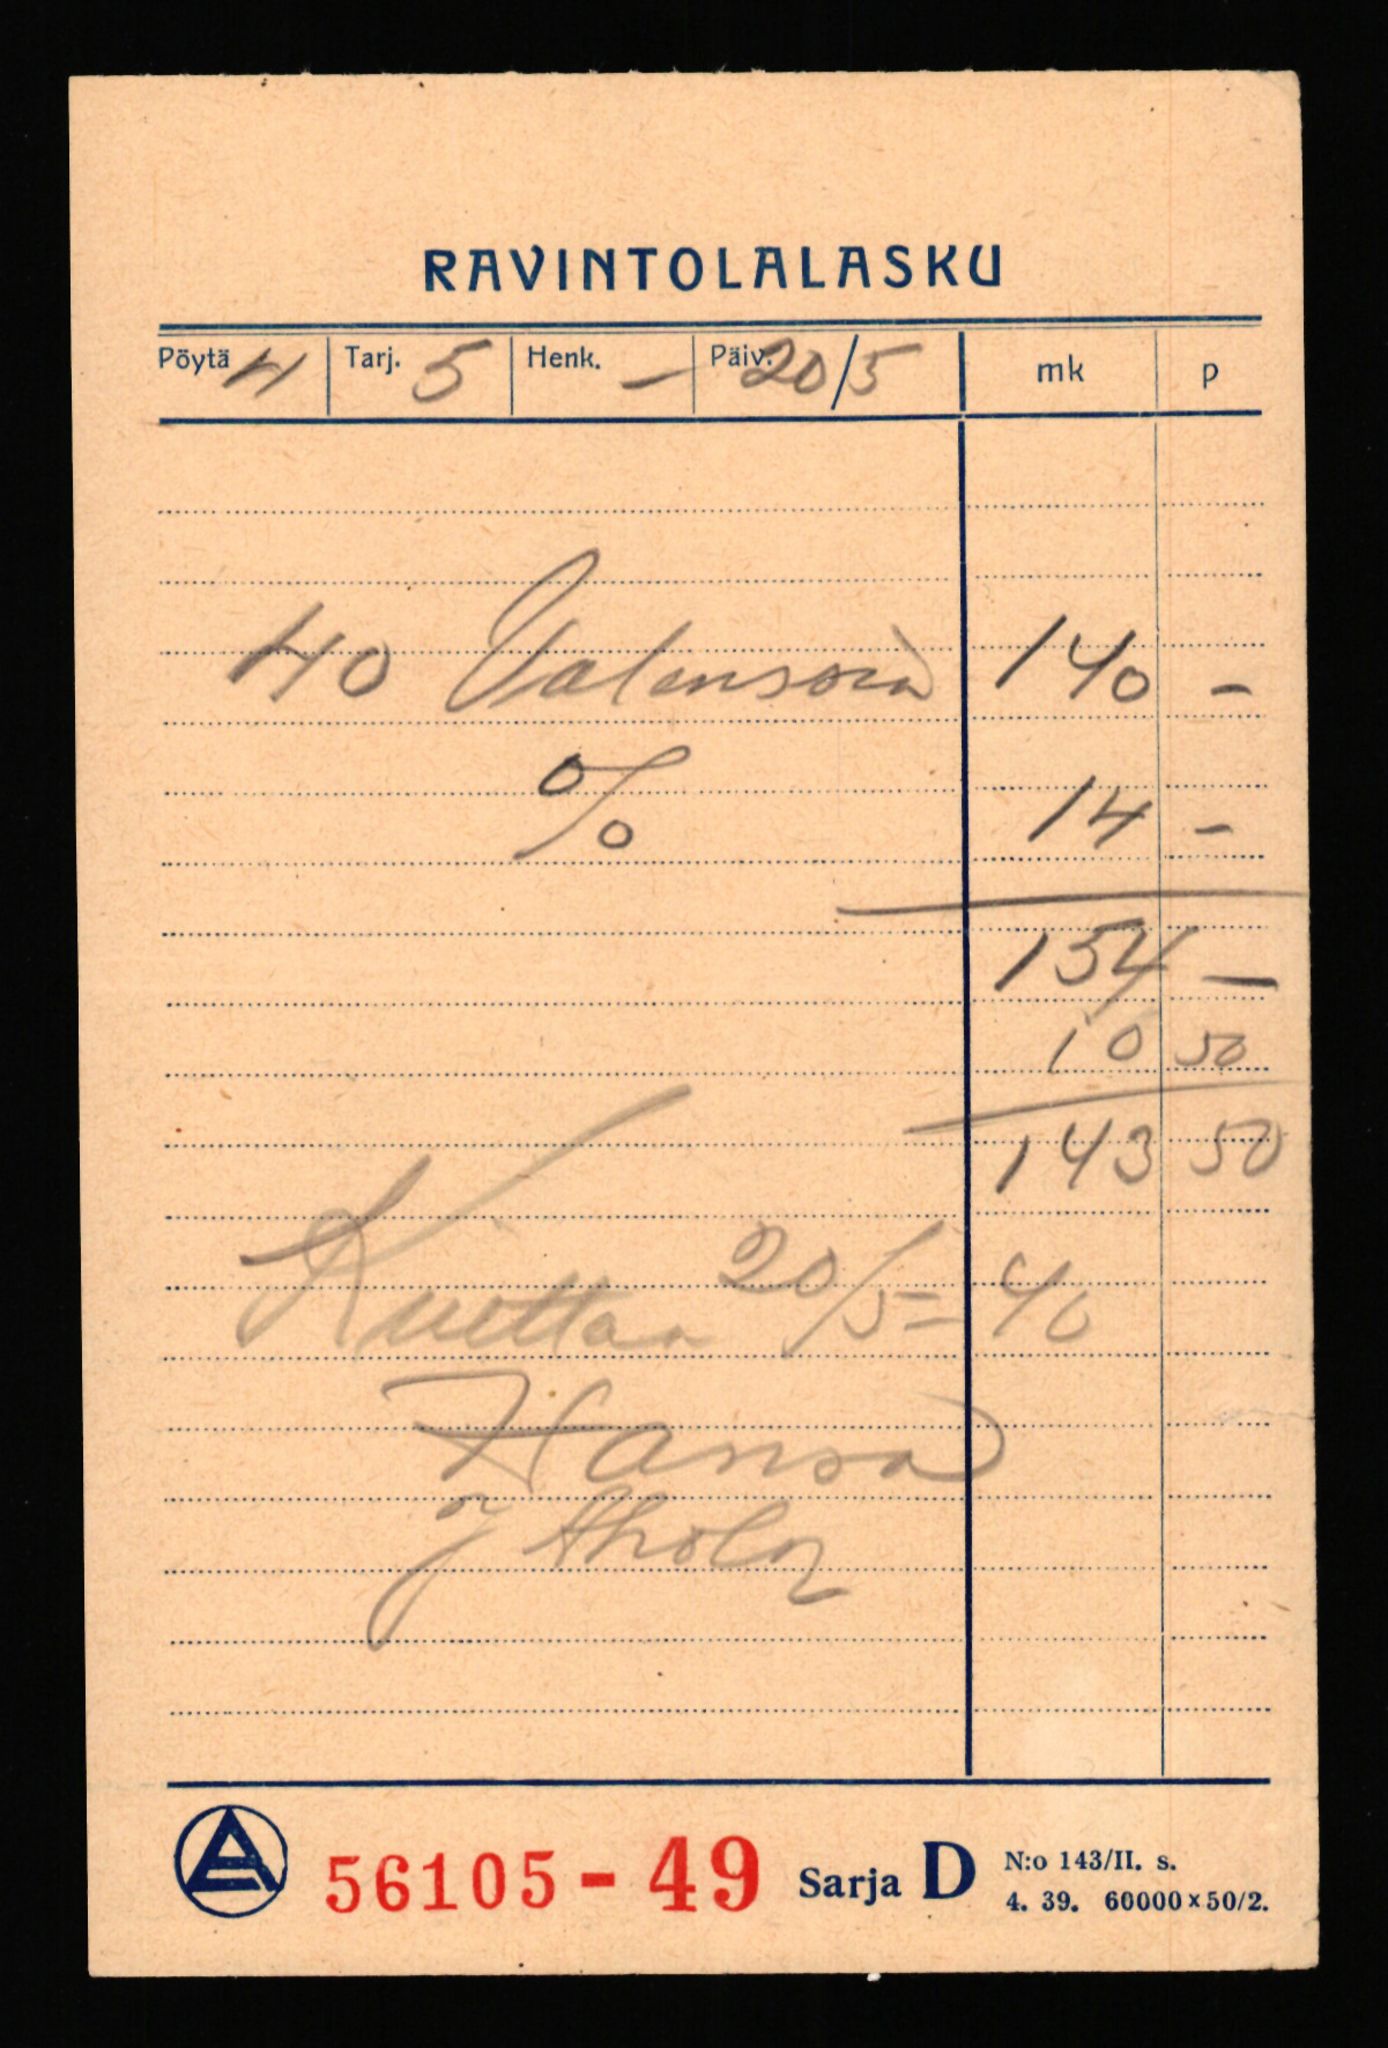 RAVINTOLALASKU
Pöytä 4 Tarj. 5 Henk. — Päiv. 20/5 mk p
40 140 -
% 14 -
154 —
10 50
143 50
Kuittaa 20/5-40
Hansa
56105-49 Sarja D N:o 143/II. s.
4. 39. 60000×50/2.